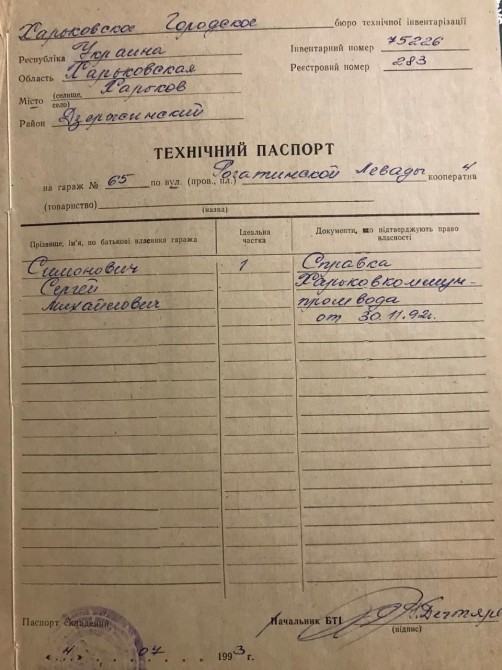 Харьковское Городское бюро технічної інвентарізації
Республіка Украина Інвентарний номер 75226
Область Харьковская Реєстровий номер 283
Місто (селище, село) Харьков
Район Дзержинский
ТЕХНІЧНИЙ ПАСПОРТ
на гараж № 65 по вул. (пров., пл.) Рогатинской Левады 4 кооператив
(товариство)
(назва)
Прізвище, ім'я, по батькові власника гаража Ідеальна частка Документи, що підтверджують право власності
Симонович 1 Справка
Сергей Харьковкоммун-
Михайлович промвода
от 30.11.92г.
Паспорт складений Начальник БТІ
(підпис)
4 07 1993 г.